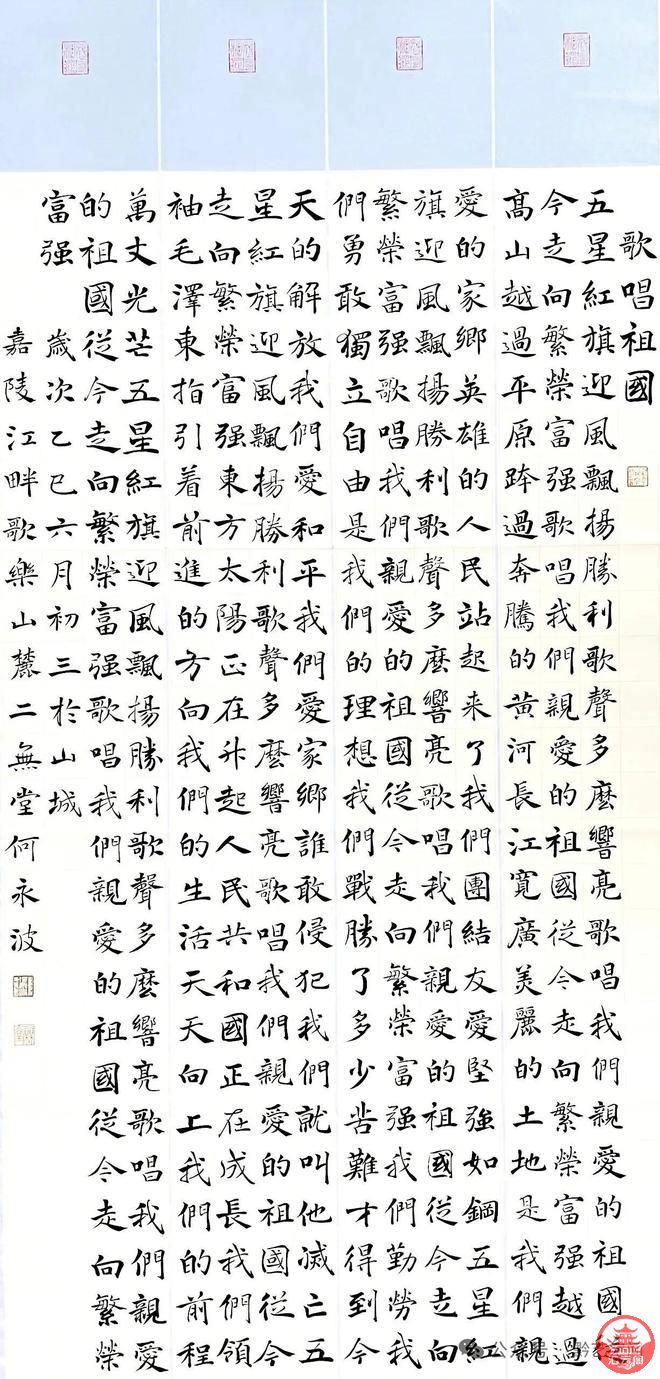 歌唱祖國
五星紅旗迎風飄揚勝利歌聲多麼響亮歌唱我們親愛的祖國從
今走向繁榮富强歌唱我們親愛的祖國從今走向繁榮富强越過
高山越過平原跨過奔騰的黃河長江寬廣美麗的土地是我們親
愛的家鄉英雄的人民站起來了我們團結友愛堅強如鋼五星紅
旗迎風飄揚勝利歌聲多麼響亮歌唱我們親愛的祖國從今走向
繁榮富强歌唱我們親愛的祖國從今走向繁榮富强我們勤勞我
們勇敢獨立自由是我們的理想我們戰勝了多少苦難才得到今
天的解放我們愛和平我們愛家鄉誰敢侵犯我們就叫他滅亡五
星紅旗迎風飄揚勝利歌聲多麼響亮歌唱我們親愛的祖國從今
走向繁榮富强東方太陽正在升起人民共和國正在成長我們領
袖毛澤東指引着前進的方向我們的生活天天向上我們的前程
萬丈光芒五星紅旗迎風飄揚勝利歌聲多麼響亮歌唱我們親愛
的祖國從今走向繁榮富强歌唱我們親愛的祖國從今走向繁榮
富强
歲次乙巳六月初三於山城
嘉陵江畔歌樂山麓二無堂何永波
公众号